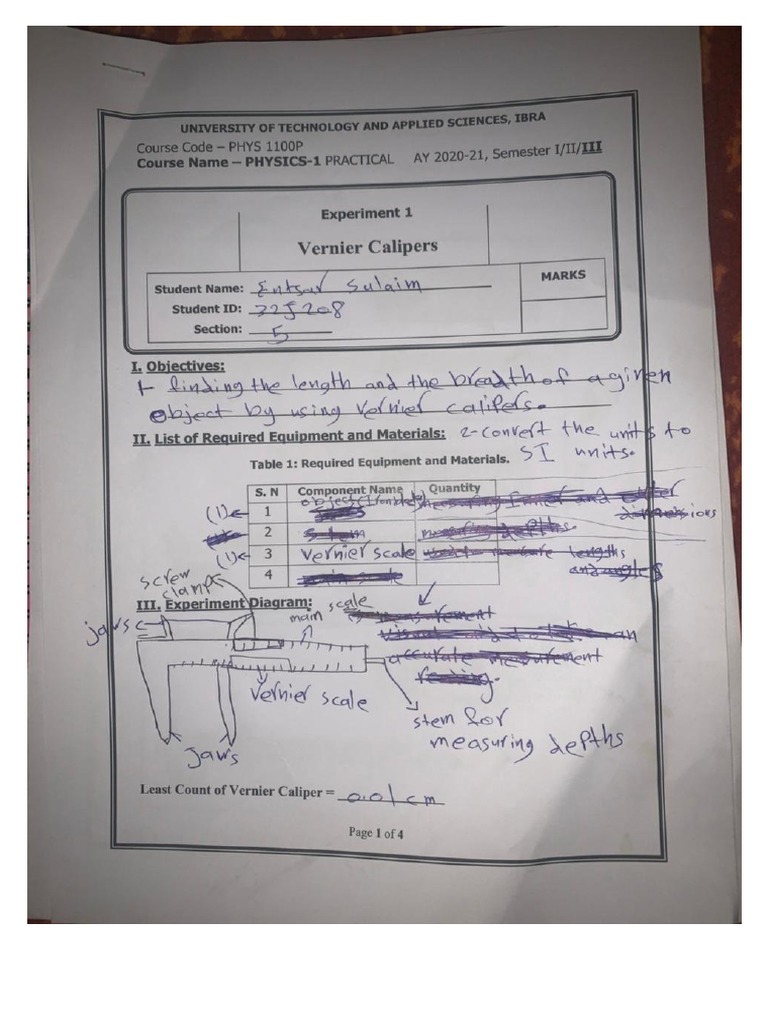 UNIVERSITY OF TECHNOLOGY AND APPLIED SCIENCES, IBRA
Course Code – PHYS 1100P
Course Name – PHYSICS-1 PRACTICAL AY 2020-21, Semester I/II/III
Experiment 1
Vernier Calipers
Student Name: Entsar Sulaim
MARKS
Student ID: 32J208
Section: 5
I. Objectives:
1- finding the length and the breadth of a given
object by using vernier calipers.
II. List of Required Equipment and Materials: 2-convert the units to
SI units.
Table 1: Required Equipment and Materials.
S. N Component Name Quantity
(1) 1 object
2 stem measuring depths.
(1) 3 vernier scale lengths
4 main scale and angles
III. Experiment Diagram:
screw
clamp
main scale
jaws
accurate measurement
vernier scale
stem for
measuring depths
jaws
Least Count of Vernier Caliper = 0.01 cm
Page 1 of 4